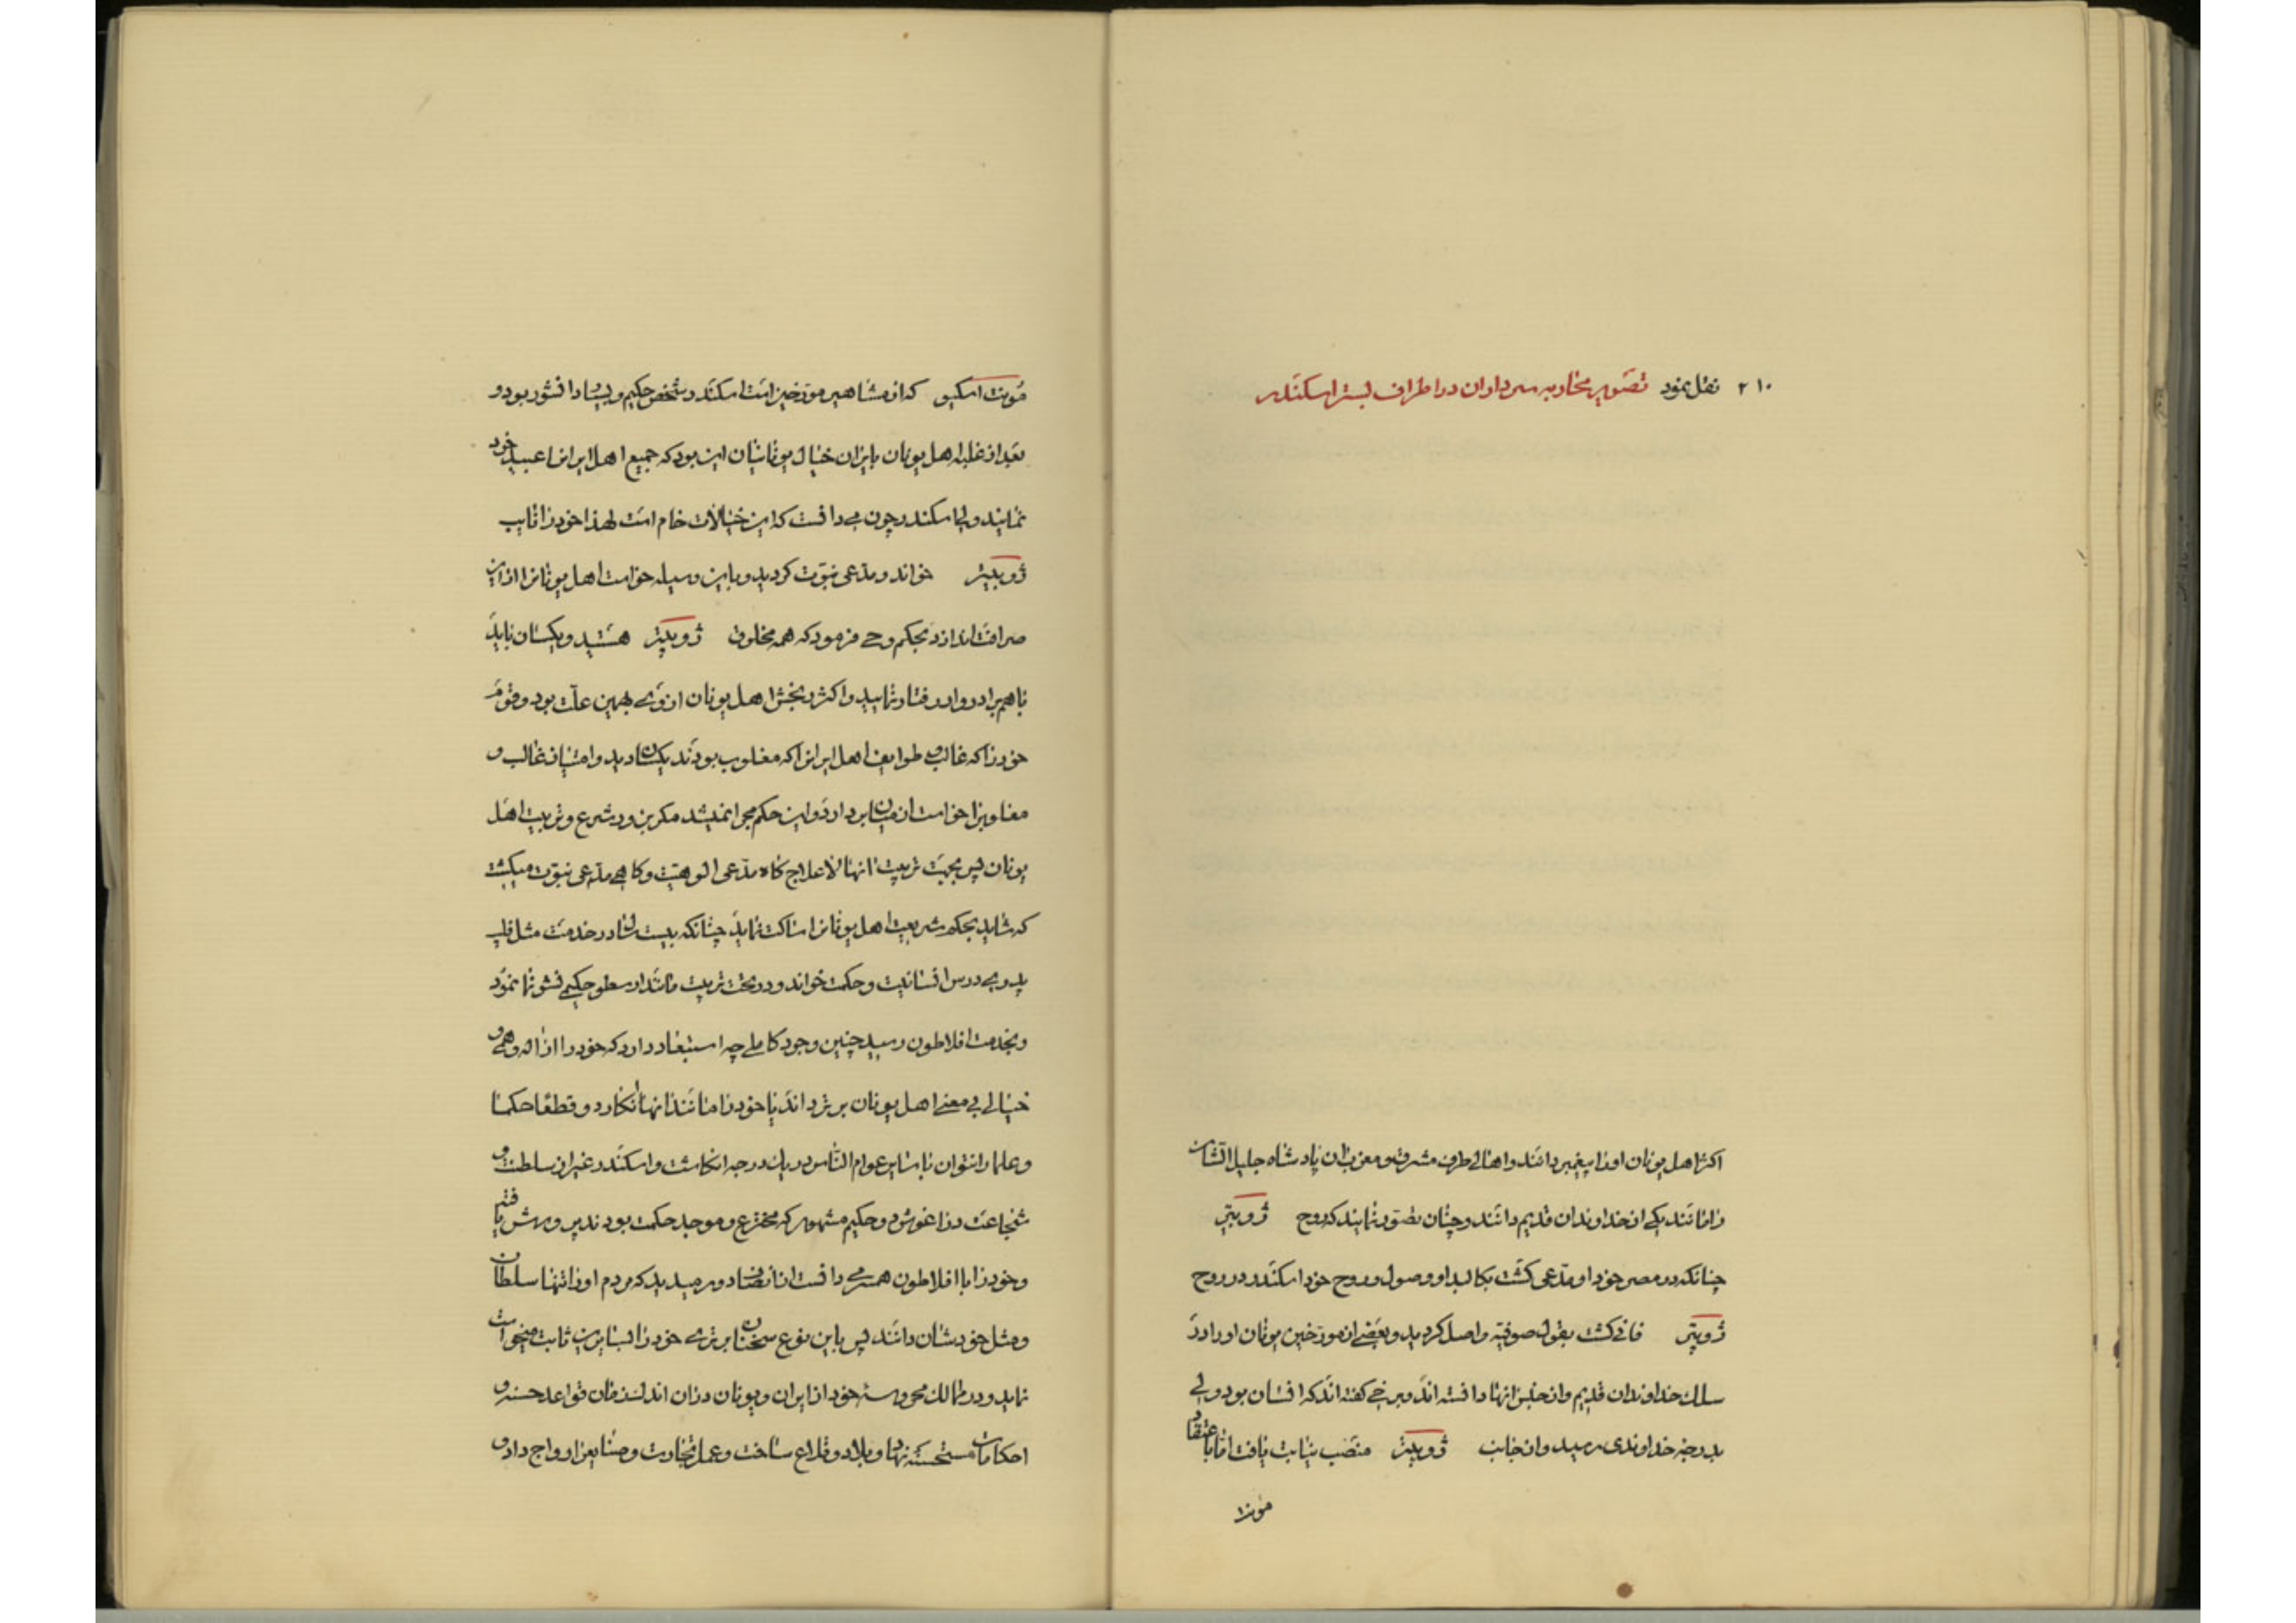 ۲۱۰ نقل نمود تصویر محاربه سرداران در اطراف بستر اسکندر
اکثر اهل یونان او را پیغمبر دانند و اهالی طرف مشرق و مغرب ان پادشاه جلیل الشان
را مانند یکی از خداوندان قدیم دانند و چنان تصور نمایند که روح ژوپیتر
چنانکه در مصر خود او مدعی گشت بکالبد او وصول و روح خود اسکندر در روح
ژوپیتر فانی گشت بقول صوفیه واصل گردید و بعضی از مورخین یونان او را در
سلک خداوندان قدیم و از جنس انها دانسته اند و برخی گفته اند که انسان بود ولی
بدرجه خداوندی رسید و از جانب ژوپیتر منصب نیابت یافت اما باعتقاد
مونت
مونت اسکیو که از مشاهیر مورخین است اسکندر شخص حکیم و بسیار دانشور بود و
بعد از غلبه اهل یونان بایران خیال یونانیان این بود که جمیع اهل ایران را عبید خود
نمایند ولی اسکندر چون می دانست که این خیالات خام است لهذا خود را نایب
ژوپیتر خواند و مدعی نبوت گردید و باین وسیله خواست اهل یونان را از این
صرافت اندازد بحکم وحی فرمود که همه مخلوق ژوپیتر هستید و یکسان باید
باهم برادروار رفتار نمایید و اکثر رنجش اهل یونان از وی بهمین علت بود و قوم
خود را که غالب و طوایف اهل ایران را که مغلوب بودند یکسان دید و امتیاز غالب و
مغلوبرا خواست از میان بردارد و این حکم مجرا نمیشد مگر بزور شرع و تربیت اهل
یونان پس بجهت تربیت انها لاعلاج گاه مدعی الوهیت و گاهی مدعی نبوت میگشت
که شاید بحکم شریعت اهل یونان را ساکت نماید چنانکه بیست سال در خدمت مثل فلیپ
پدری درس انسانیت و حکمت خواند و در تحت تربیت مانند ارسطو حکیمی نشو نما نمود
و بخدمت افلاطون رسید چنین وجود کاملی چه استبعاد دارد که خود را از اله وهمی و
خیالی بی معنی اهل یونان برتر داند یا خود را مانند انها انگارد و قطعا حکما
و علما را نتوان با سایر عوام الناس در یک درجه انگاشت و اسکندر غیر از سلطنت و
شجاعت در اغوش دو حکیم مشهور که مخترع و موجد حکمت بودند پرورش یافته
و خود را با افلاطون همسر می دانست از انصاف دور میدید که مردم او را تنها سلطان
و مثل خودشان دانند پس باین نوع سخنان برتری خود را بسایرین ثابت میخواست
نماید و در ممالک محروسه خود از ایران و یونان در ان اندک زمان قواعد حسنه و
احکامات مستحسنه نهاد و بلاد و قلاع ساخت و عمل تجارت و صنایع را رواج داد و